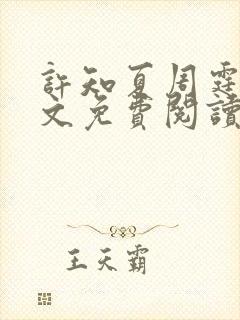 許知夏周霆
文免費閱讀
王天霸